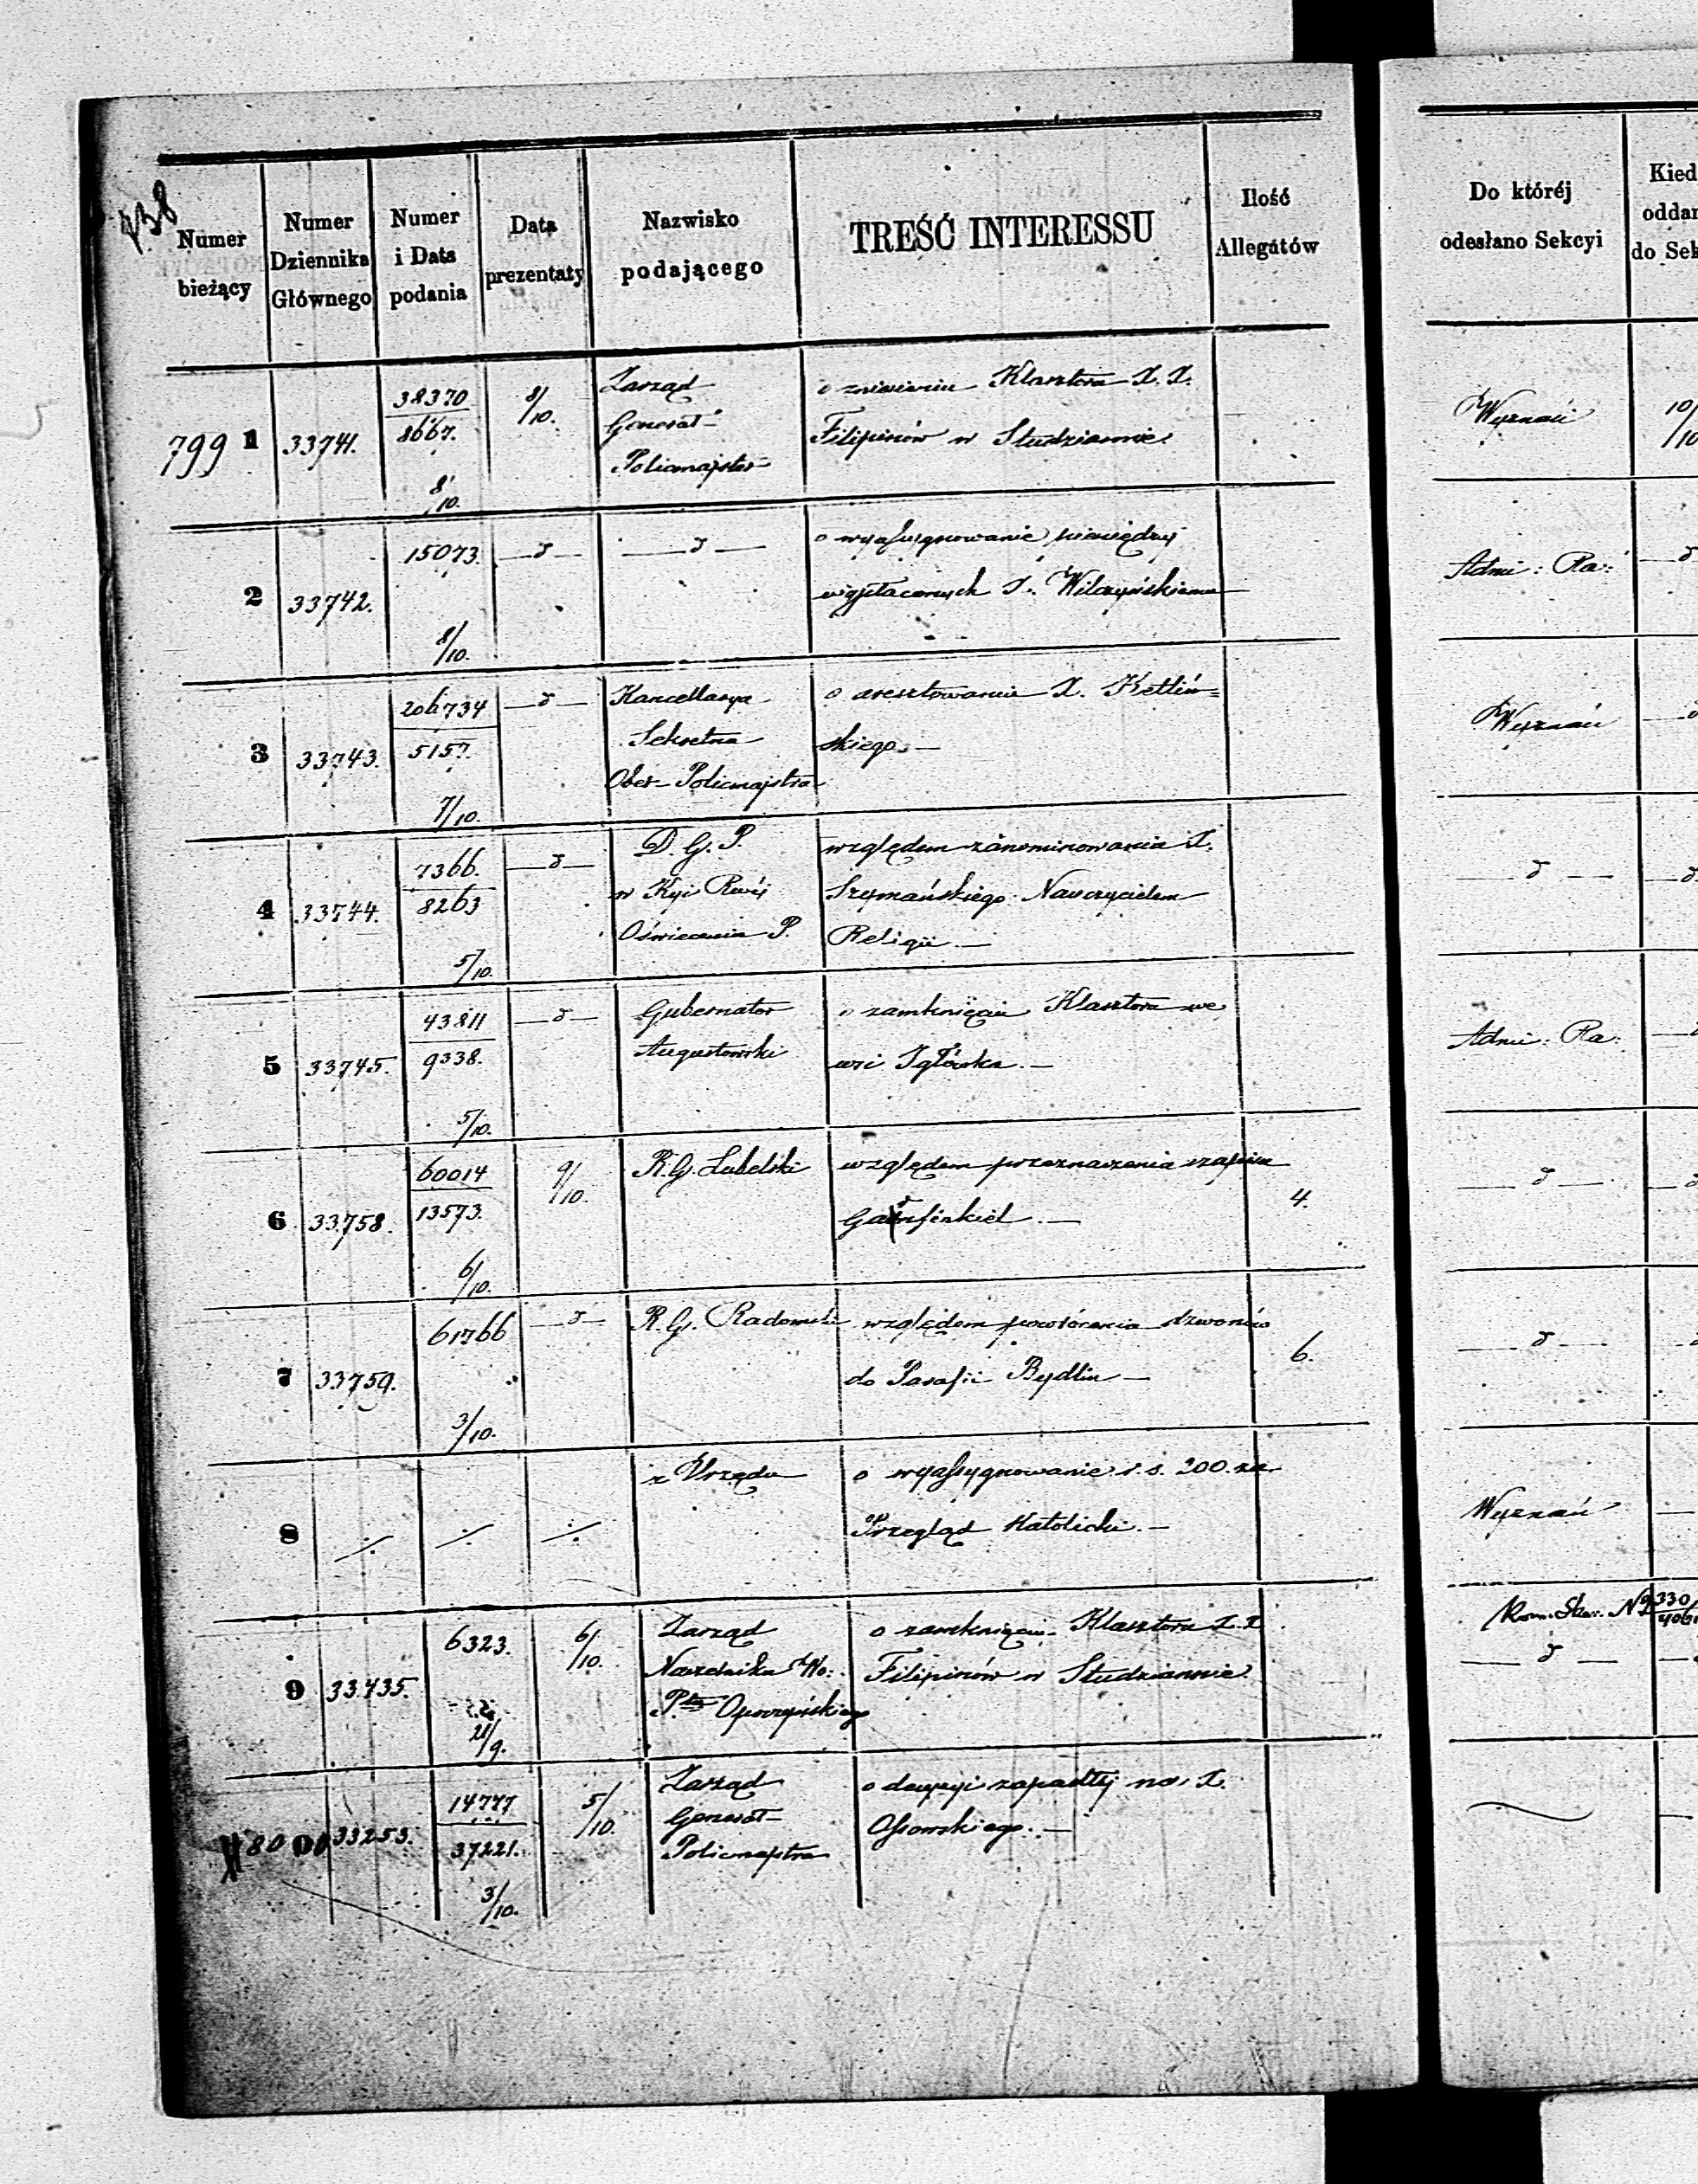 438
Numer bieżący
Numer Dziennika Głównego
Numer i Data podania
Data prezentaty
Nazwisko podającego
TREŚĆ INTERESSU
Ilość Allegatów
Do któréj odesłano Sekcyi
Kied
oddan
do Sek
799 1
33741.
38370
8667.
8/10.
8/10.
Zarząd
Generał
Policmajstor
o zniesieniu Klasztora X. X.
Filipinów w Studziannie
Wyznań
10/10
2
33742.
15073.
8/10.
—d—
—d—
o wyassygnowanie pieniędzy
wypłaconych X. Wilczyńskiemu
Admi: Ra:
—d
3
33743.
206734
5157.
7/10.
—d—
Kancellarya
Sekretna
Ober-Policmajstra
o aresztowaniu X. Ketliń=
skiego.—
Wyznań
4
33744.
7366.
8263
5/10.
—d—
D. G. P.
w Kyi Rwéj
Oświecenia P.
względem zanominowania X.
Szymańskiego Nauczycielem
Religii.—
—d—
—d
5
33745.
43811
9338.
5/10.
—d—
Gubernator
Augustowski
o zamknięciu Klasztora we
wsi Igłówka.—
Admi: Ra:
6
33758.
60014
13573.
6/10.
9/10.
R. G. Lubelski
względem przeznaczenia zapisu
4.
—d—
—d
7
33759.
61766
3/10.
—d—
R. G. Radomski
względem powrócenia dzwonów
do Parafii Bydlin—
6.
—d—
8
./.
./.
./.
z Urzędu
o wyassygnowanie r. s. 200. za
Przegląd Katolicki.—
Wyznań
9
33435.
6323.
21/9.
6/10.
Zarząd
Naczelnika Wo:
Ptu Opoczyńskiego
o zamknięciu Klasztoru X. X.
Filipinów w Studziannie
Kom. Ska: No 330
—d—
800
33253.
14777
37221.
3/10.
5/10.
Zarząd
Generał
Policmajstra
o decyzyi zapadłéj na X.
Ossowskiego.—